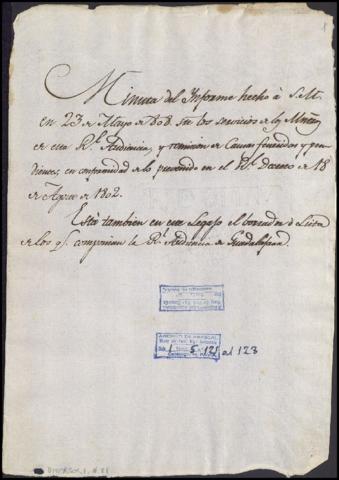 Minuta del Informe hecho à S.M.
en 23 de Mayo de 808. sre los servicios de los Mntros
de esta Rl. Audiencia, y remision de Causas fenecidas y pen
dientes, en conformidad de lo prevenido en el Rl. Decreto de 18
de Agto de 1802.
Está tambien en este Legajo el borrador ò Lista
de los q. componian la Rl. Audiencia de Guadalaxara.
ARCHIVO DE ABASCAL
1 5 121 al 123
DIVERSOS, 1, N.